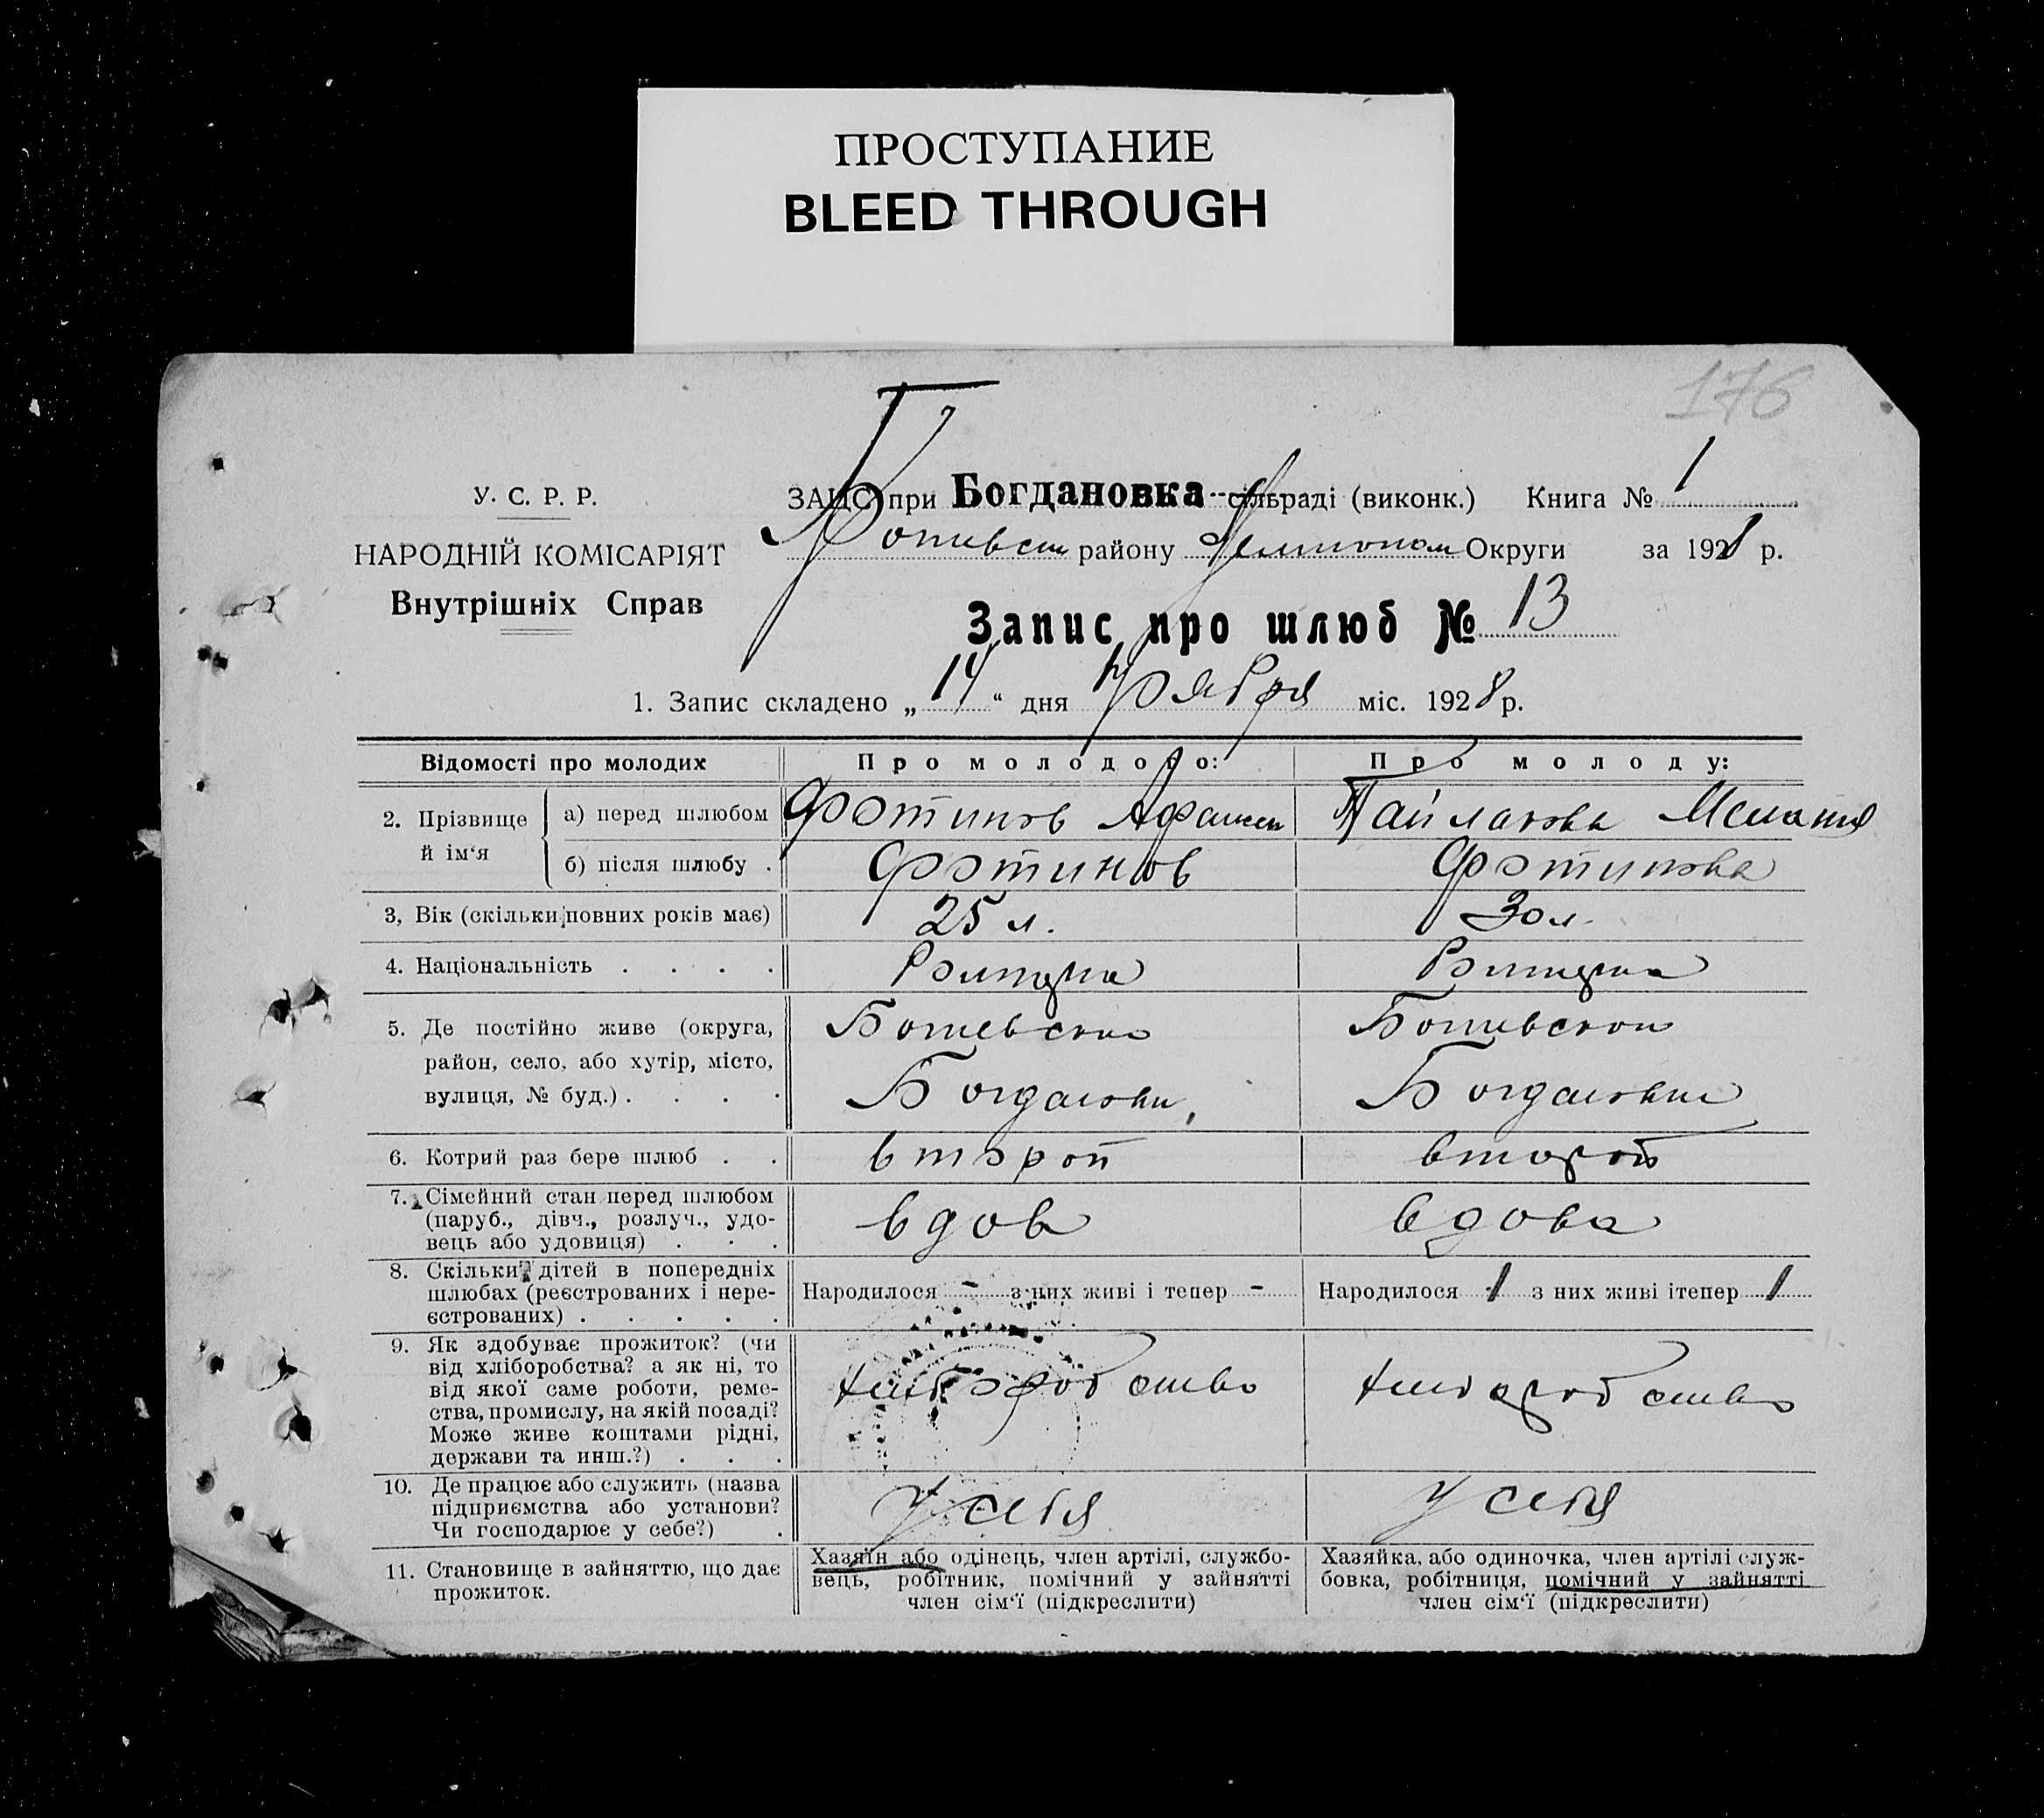 ПРОСТУПАНИЕ
BLEED THROUGH
176
У. С. Р. Р.
НАРОДНІЙ КОМІСАРІЯТ
Внутрішніх Справ
ЗАЦС при Богдановка сільраді (виконк.) Книга № 1
району Округи за 1928 р.
Запис про шлюб № 13
1. Запис складено „ 14 “ дня ноября міс. 1928 р.
Відомості про молодих Про молодого: Про молоду:
2. Прізвище й ім‘я
а) перед шлюбом Фотинов Тайлакова
б) після шлюбу . Фотинов Фотинова
3, Вік (скільки повних років має) 25 л. 30 л.
4. Національність . . . .
5. Де постійно живе (округа,
район, село, або хутір, місто,
вулиця, № буд.) . . . .
6. Котрий раз бере шлюб . . второй второй
7. Сімейний стан перед шлюбом
(паруб., дівч., розлуч., удо-
вець або удовиця) . . . вдов вдова
8. Скільки дітей в попередніх
шлюбах (реєстрованих і нере-
єстрованих) . . . . .
Народилося - з них живі і тепер -
Народилося 1 з них живі ітепер 1
9. Як здобуває прожиток? (чи
від хліборобства? а як ні, то
від якої саме роботи, реме-
ства, промислу, на якій посаді?
Може живе коштами рідні,
держави та инш.?) . . .
10. Де працює або служить (назва
підприємства або установи?
Чи господарює у себе?) .
у себя у себя
11. Становище в зайняттю, що дає
прожиток.
Хазяїн або одінець, член артілі, службо-
вець, робітник, помічний у зайнятті
член сім‘ї (підкреслити)
Хазяйка, або одиночка, член артілі служ-
бовка, робітниця, помічний у зайнятті
член сім‘ї (підкреслити)